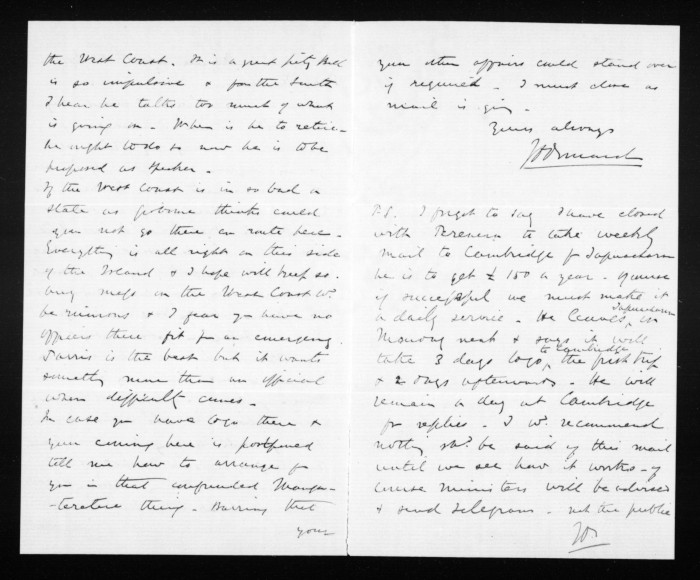 the West Coast. It is a great pity
is so impulsive & from the South
I hear he talks too much of what
is going on - When is he to retire -
he ought to do so now he is to be
proposed as Speaker -
If the West Coast is in so bad a
state as thinks could
you not go there en route here -
Everything is all right on this side
of the Island & I hope will keep so.
any mess on the West Coast wd.
be ruinous & I fear you have no
officers there fit for an emergency.
Parris is the best but it wants
something more than an official
when difficulty comes -
In case you have to go there &
your coming here is postponed
tell me how to arrange for
you in that confounded Manga-
-terature thing - Barring that
your
your other affairs could stand over
if required - I must close as
mail is going -
Yours always
JD Ormond
P.S. I forgot to say I have closed
with to take weekly
mail to Cambridge fr Tapuaeharu
he is to get £150 a year - of course
if successful we must make it
a daily service - He leaves Tapuaeharu on
Monday next & says it will
take 3 days to go to Cambridge the first trip
& 2 days afterwards - He will
remain a day at Cambridge
for replies - I wd. recommend
nothing shd. be said of this mail
until we see how it works - of
course Ministers will be advised
& send telegrams - not the public
JDO